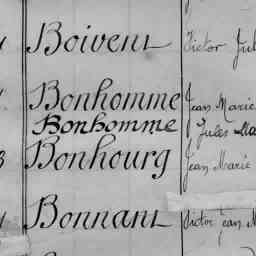 Boivent Victor Jul
Bonhomme Jean Marie
Bonhomme Jules Ma
3 Bonhourg Jean Marie
Bonnant Victor Jean M